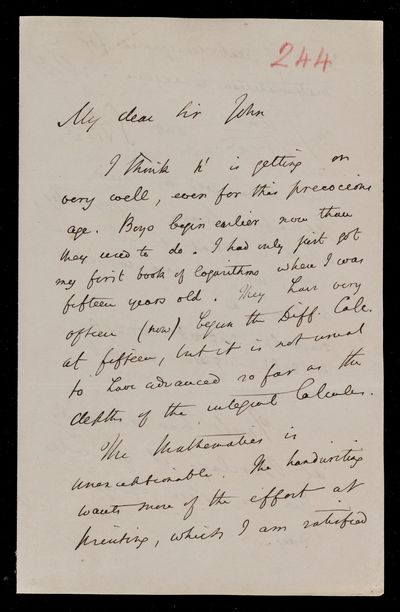 244
My dear Sir John
I think h' is getting on
very well, even for this precocious
age. Boys begin earlier now than
they used to do. I had only just got
my first book of logarithms when I was
fifteen years old. They have very
often (now) begun the Diff. Calc.
at fifteen, but it is not usual
to have advanced so far as the
depths of the integral Calculus.
The Mathematics is
unexceptionable. The handwriting
wants more of the effort at
printing, which I am satisfied